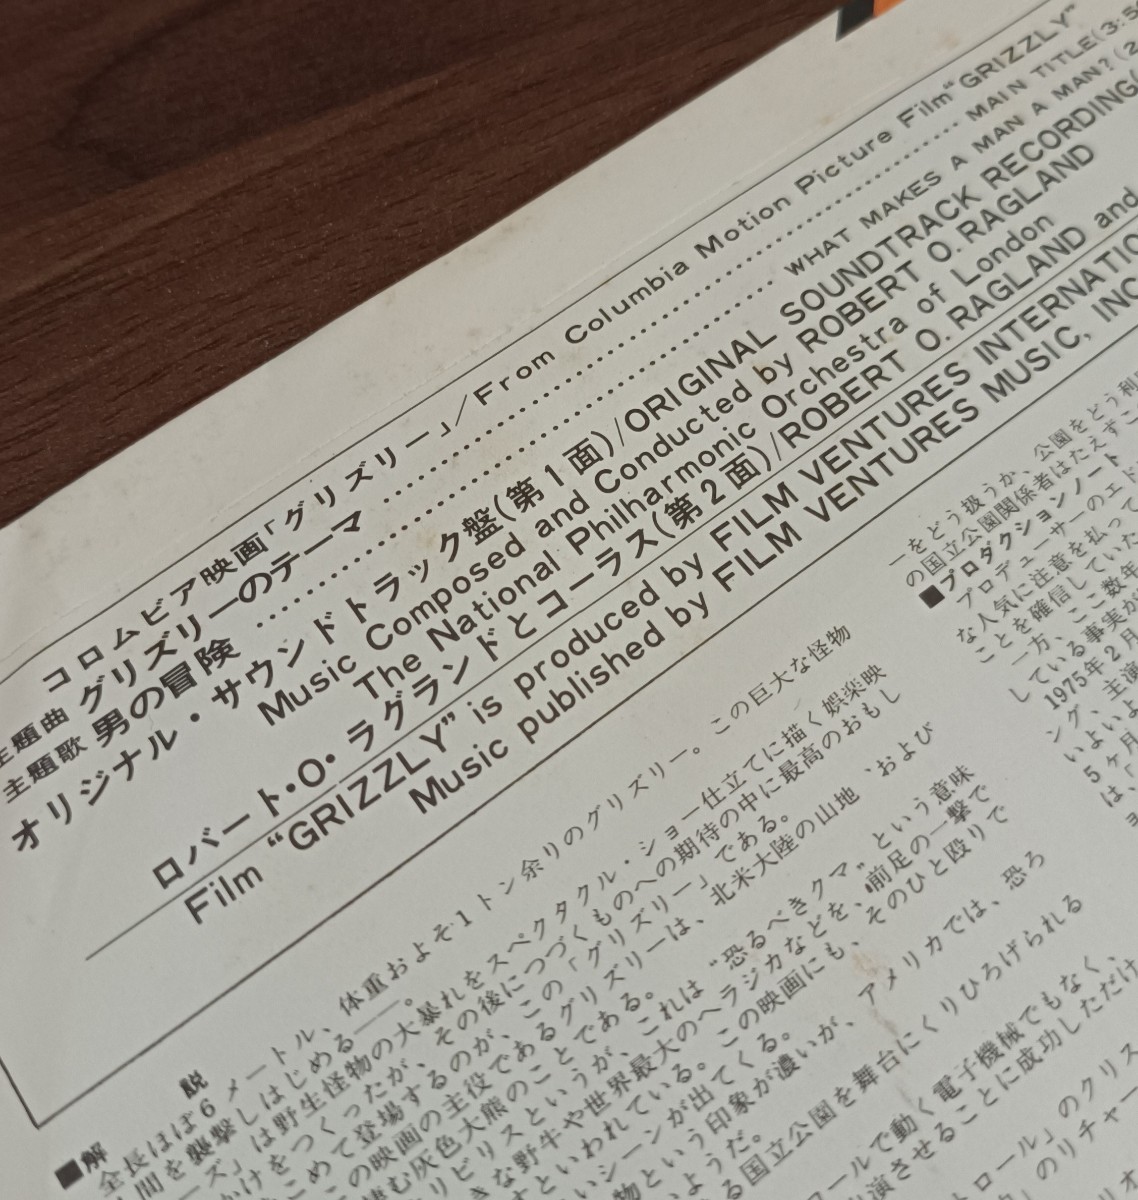 コロムビア映画「グリズリー」/From Columbia Motion Picture Film“GRIZZLY”
主題曲 グリズリーのテーマ ……………………………… MAIN TITLE(3:5
主題歌 男の冒険 ……………………………… WHAT MAKES A MAN A MAN?(2
オリジナル・サウンドトラック盤(第1面)/ORIGINAL SOUNDTRACK RECORDING(
Music Composed and Conducted by ROBERT O. RAGLAND
The National Philharmonic Orchestra of London
ロバート・O・ラグランドとコーラス(第2面)/ROBERT O. RAGLAND and
Film “GRIZZLY” is produced by FILM VENTURES INTERNATIO
Music published by FILM VENTURES MUSIC, INC
■解 説
全長ほぼ6メートル、体重およそ1トン余りのグリズリー。この巨大な怪物
間を襲撃しはじめる——。
ーズ」は野生怪物の大暴れをスペクタクル・ショー仕立てに描く娯楽映
かけをつくったが、その後につづくものへの期待の中に最高のおもし
こめて登場するのが、この「グリズリー」である。
の映画の主役であるグリズリーは、北米大陸の山地、および
棲む灰色大熊のことである。
リビリスというが、これは“恐るべきクマ”という意味
きな野牛や世界最大のヘラジカなどを、前足の一撃で
すといわれている。この映画にも、そのひと殴りで
いシーンが出てくる。
物という印象が濃いが、アメリカでは、恐ろ
ようだ。
る国立公園を舞台にくりひろげられる
ールで動く電子機械でもなく、
演させることに成功しただけ
ロール」のクリス
のリチャー
ーをどう扱うか、公園をどう利
の国立公園関係者はたえずこ
■プロダクションノート
プロデューサーのエド
な人気に注意を払って
ことを確信していた
一方、ここ数年
している事実が
1975年2月
ング、主演
いよいよ
5ヶ月
は、「
ョ